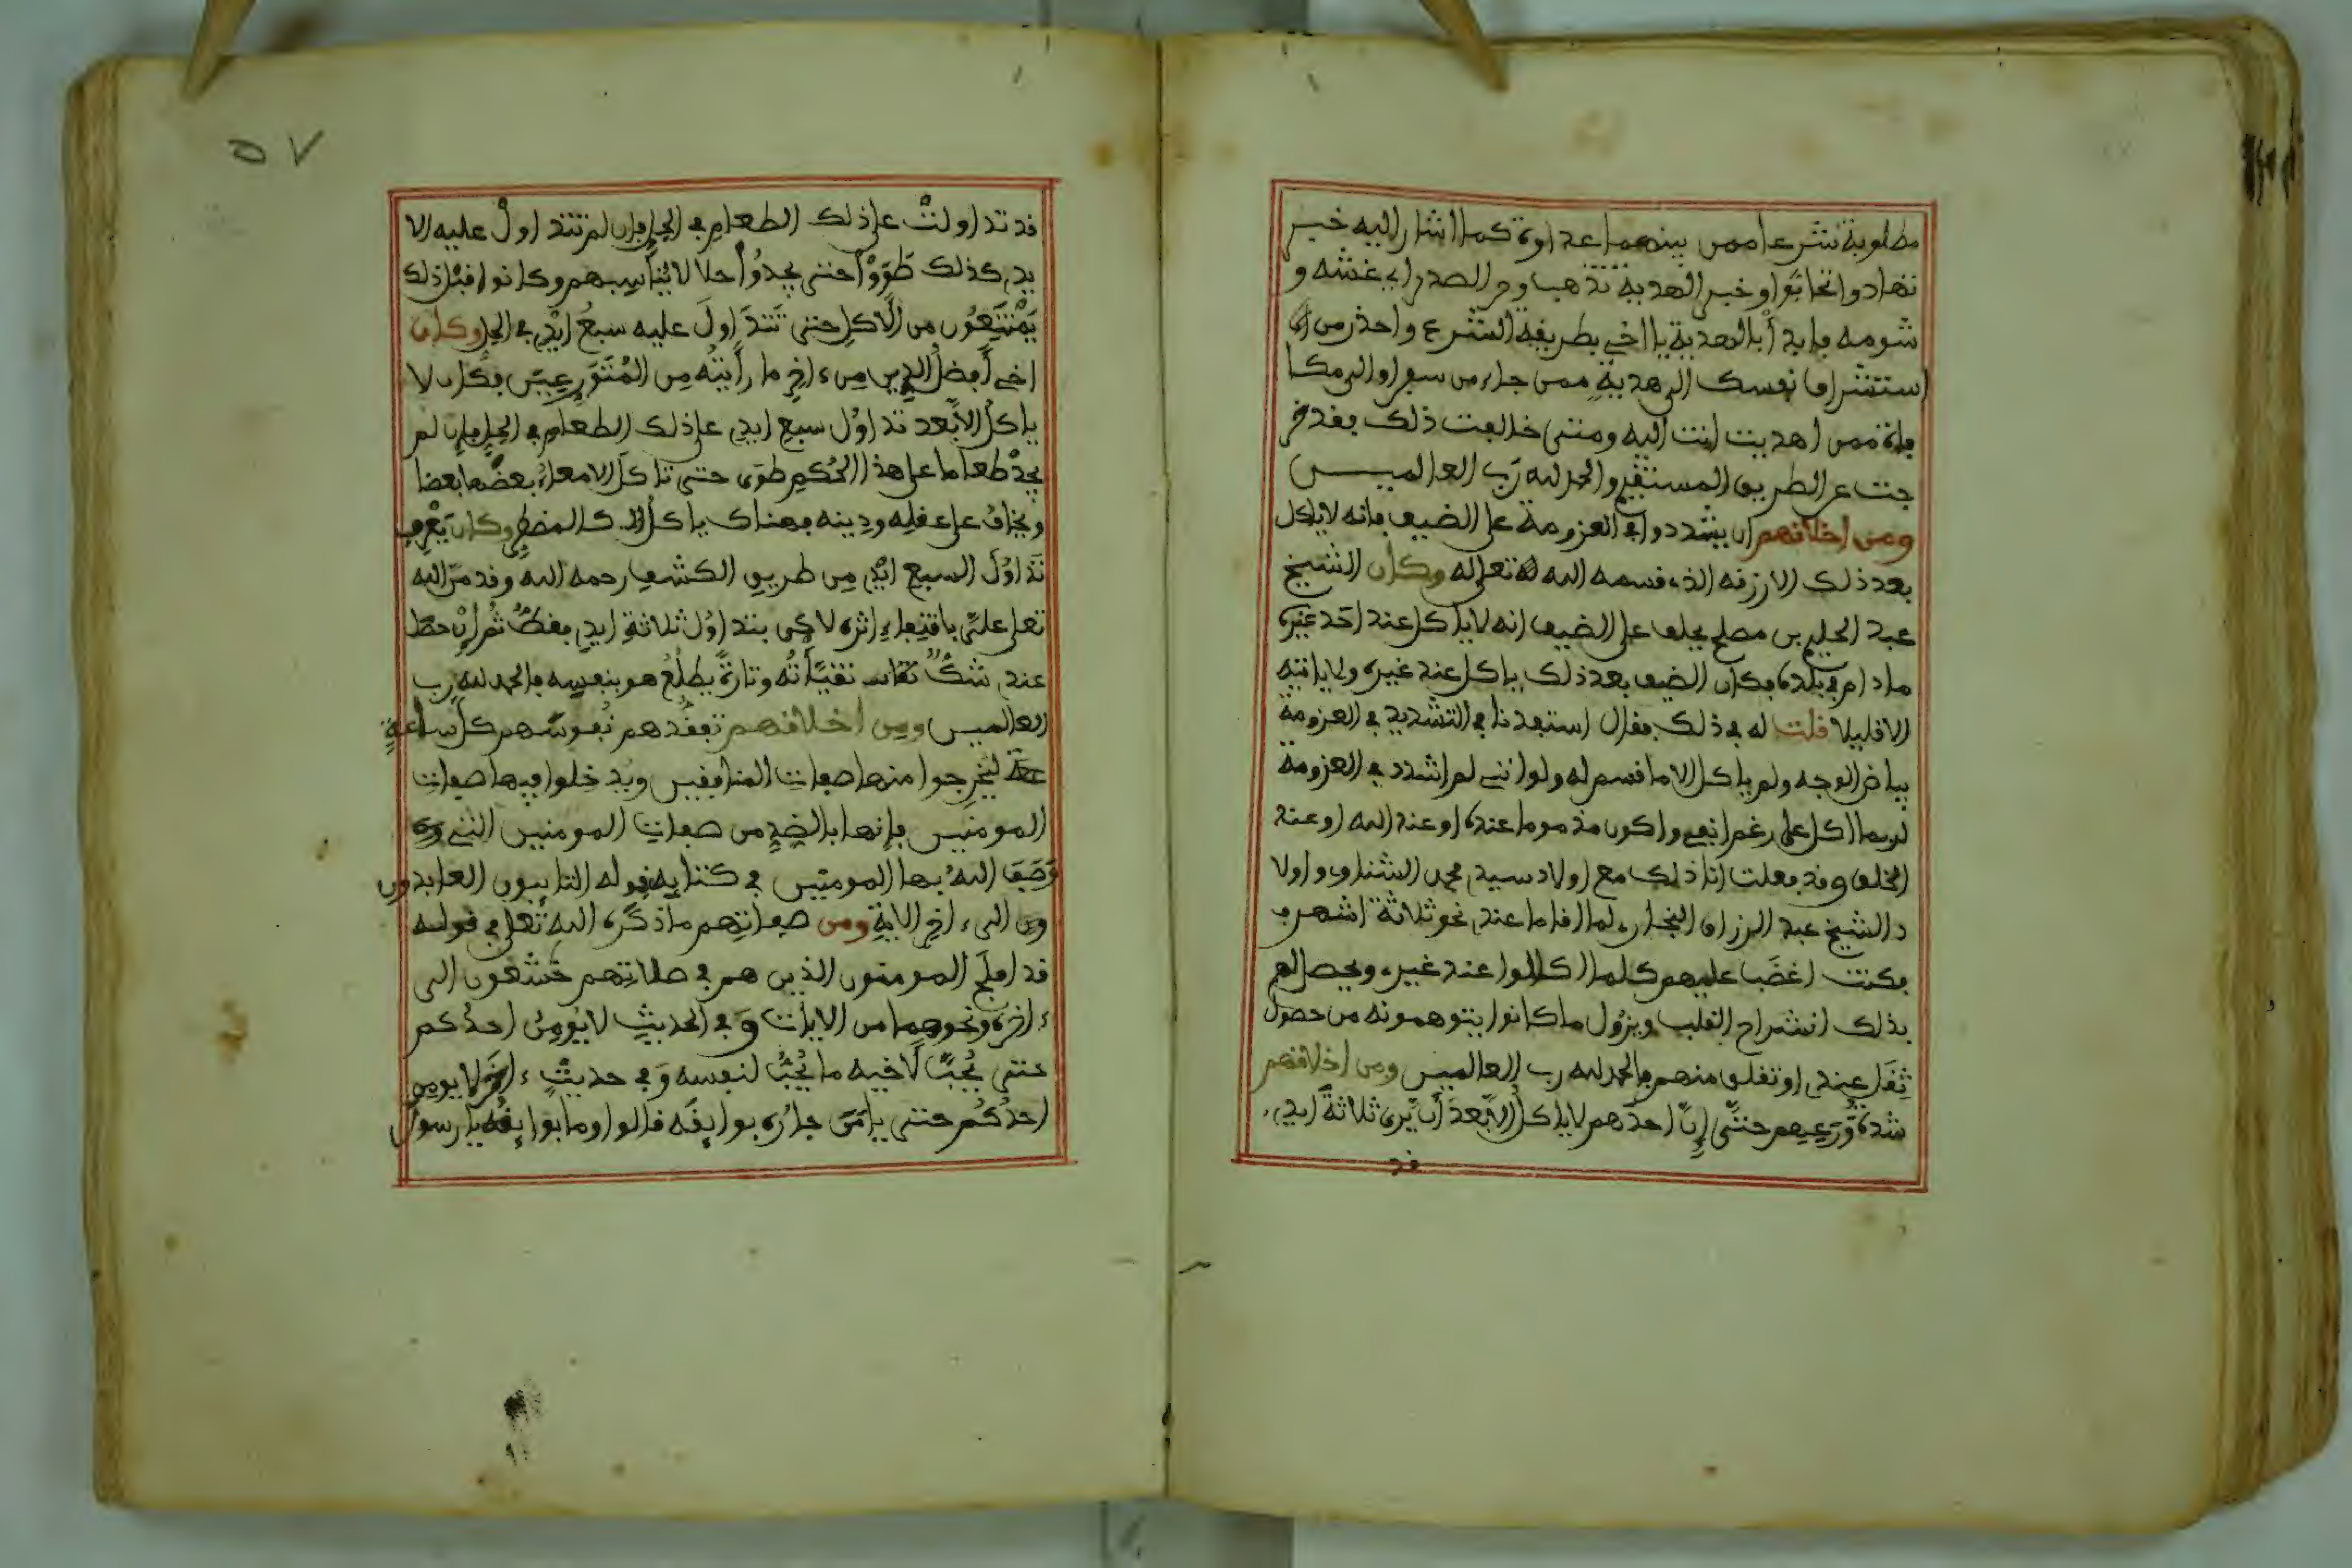 مطلوبة شرعا ممن بينهما عداوة كما اشار اليه خبر
تهادوا تحابوا وخبر الهدية تذهب وحر الصدر اي غشه و
شومه فابدأ بالهدية يا اخي بطريقة الشرع واحذر من
استشراف نفسك الى هدية ممن جاء من سفر او الى مكا
فاة ممن اهديت انت اليه ومتى خالفت ذلك فقد خر
جت عن الطريق المستقيم والحمد لله رب العالميـــن
ومن اخلاقهم ان يشددوا في العزومة على الضيف فانه لا ياكل
بعد ذلك الا رزقه الذي قسمه الله تعالى له وكان الشيخ
عبد الحليم بن مصلح يحلف على الضيف انه لا ياكل عند احد غيره
مادام في بلده فكان الضيف بعد ذلك ياكل عند غيره ولا ياتيه
الا قليلا فلت له في ذلك فقال استفدنا في التشديد في العزومة
بياض الوجه ولم ياكل الا ما قسم له ولو انني لم اشدد في العزومة
لربما اكل على رغم انفي واكون مذموما عنده او عند الله او عند
الخلق وقد فعلت انا ذلك مع اولاد سيدي محمد الشناوي واولا
د الشيخ عبد الرزاق البخاري لما اقاما عندي نحو ثلاثة اشهر
فكنت اغضب عليهم كلما اكلوا عند غيري ويحصل لهم
بذلك انشراح القلب ويزول ما كانوا يتوهمونه من حصول
ثقل عندي او تقلق منهم فالحمد لله رب العالمين ومن اخلاقهم
شدة تورعهم حتى ان احدهم لا ياكل الا بعد ان يرى ثلاثة ايدي
قد
٥٧
قد تداولت على ذلك الطعام في الحل فان لم تتداول عليه الا
يدي كذلك طووا حتى يجدوا حلالا يناسبهم وكانوا قبل ذلك
يمتنعون من الاكل حتى تتداول عليه سبع ايدي في الحل وكان
اخي افضل الدين من ءاخر ما رايته من المتورعين فكان لا
ياكل الا بعد تداول سبع ايدي على ذلك الطعام في الحل فان لم
يجد طعاما على هذا الحكم طوى حتى تاكل الامعاء بعضها بعضا
ويخاف على عقله ودينه فهناك ياكل كالمضطر وكان يعرف
تداول السبع ايدي من طريق الكشف رحمه الله وقد من الله
تعالى علي باقتفاء اثره لاكن بتداول ثلاثة ايدي فقط ثم ان حصل
عندي شك تقيأته وتارة يطلع هو بنفسه فالحمد لله رب
العالمين ومن اخلاقهم تفقدهم نفوسهم كل ساعة
ليخرجوا منها صفات المنافقين ويدخلوا فيها صفات
المومنين فانها بالضد من صفات المومنين التي
وصف الله بها المومنين في كتابه بقوله التايبون العابدون
الى ءاخر الاية ومن صفاتهم ما ذكره الله تعلى في قوله
قد افلح المومنون الذين هم في صلاتهم خشعون الى
ءاخره ونحوهما من الايات وفي الحديث لا يومن احدكم
حتى يحب لاخيه ما يحب لنفسه وفي حديث ءاخر لا يومن
احدكم حتى يامن جاره بوايقه قالوا وما بوايقه يا رسول